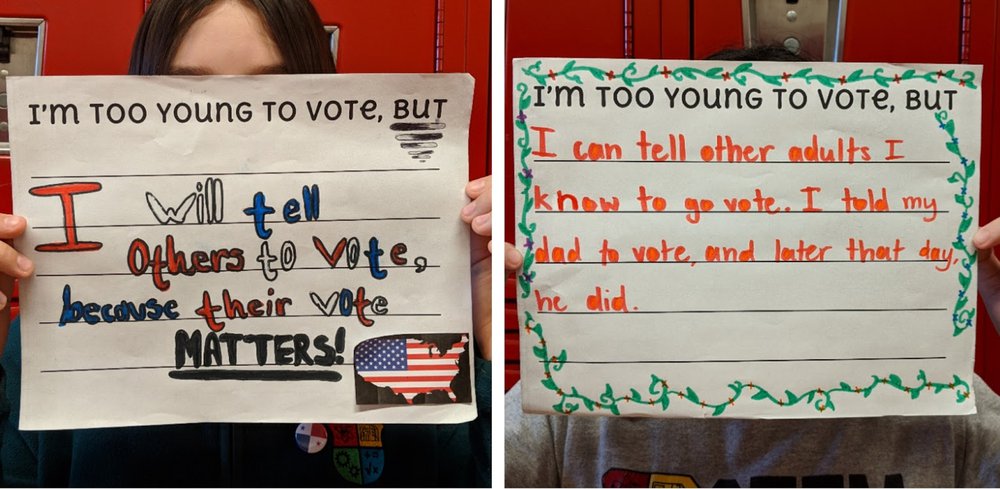 I'm TOO YOUNG TO VOTe, BUT
I will tell
Others to Vote,
because their vote
MATTERS!
I'm TOO YOUNG TO VOTe, BUT
I can tell other adults I
know to go vote. I told my
dad to vote, and later that day,
he did.